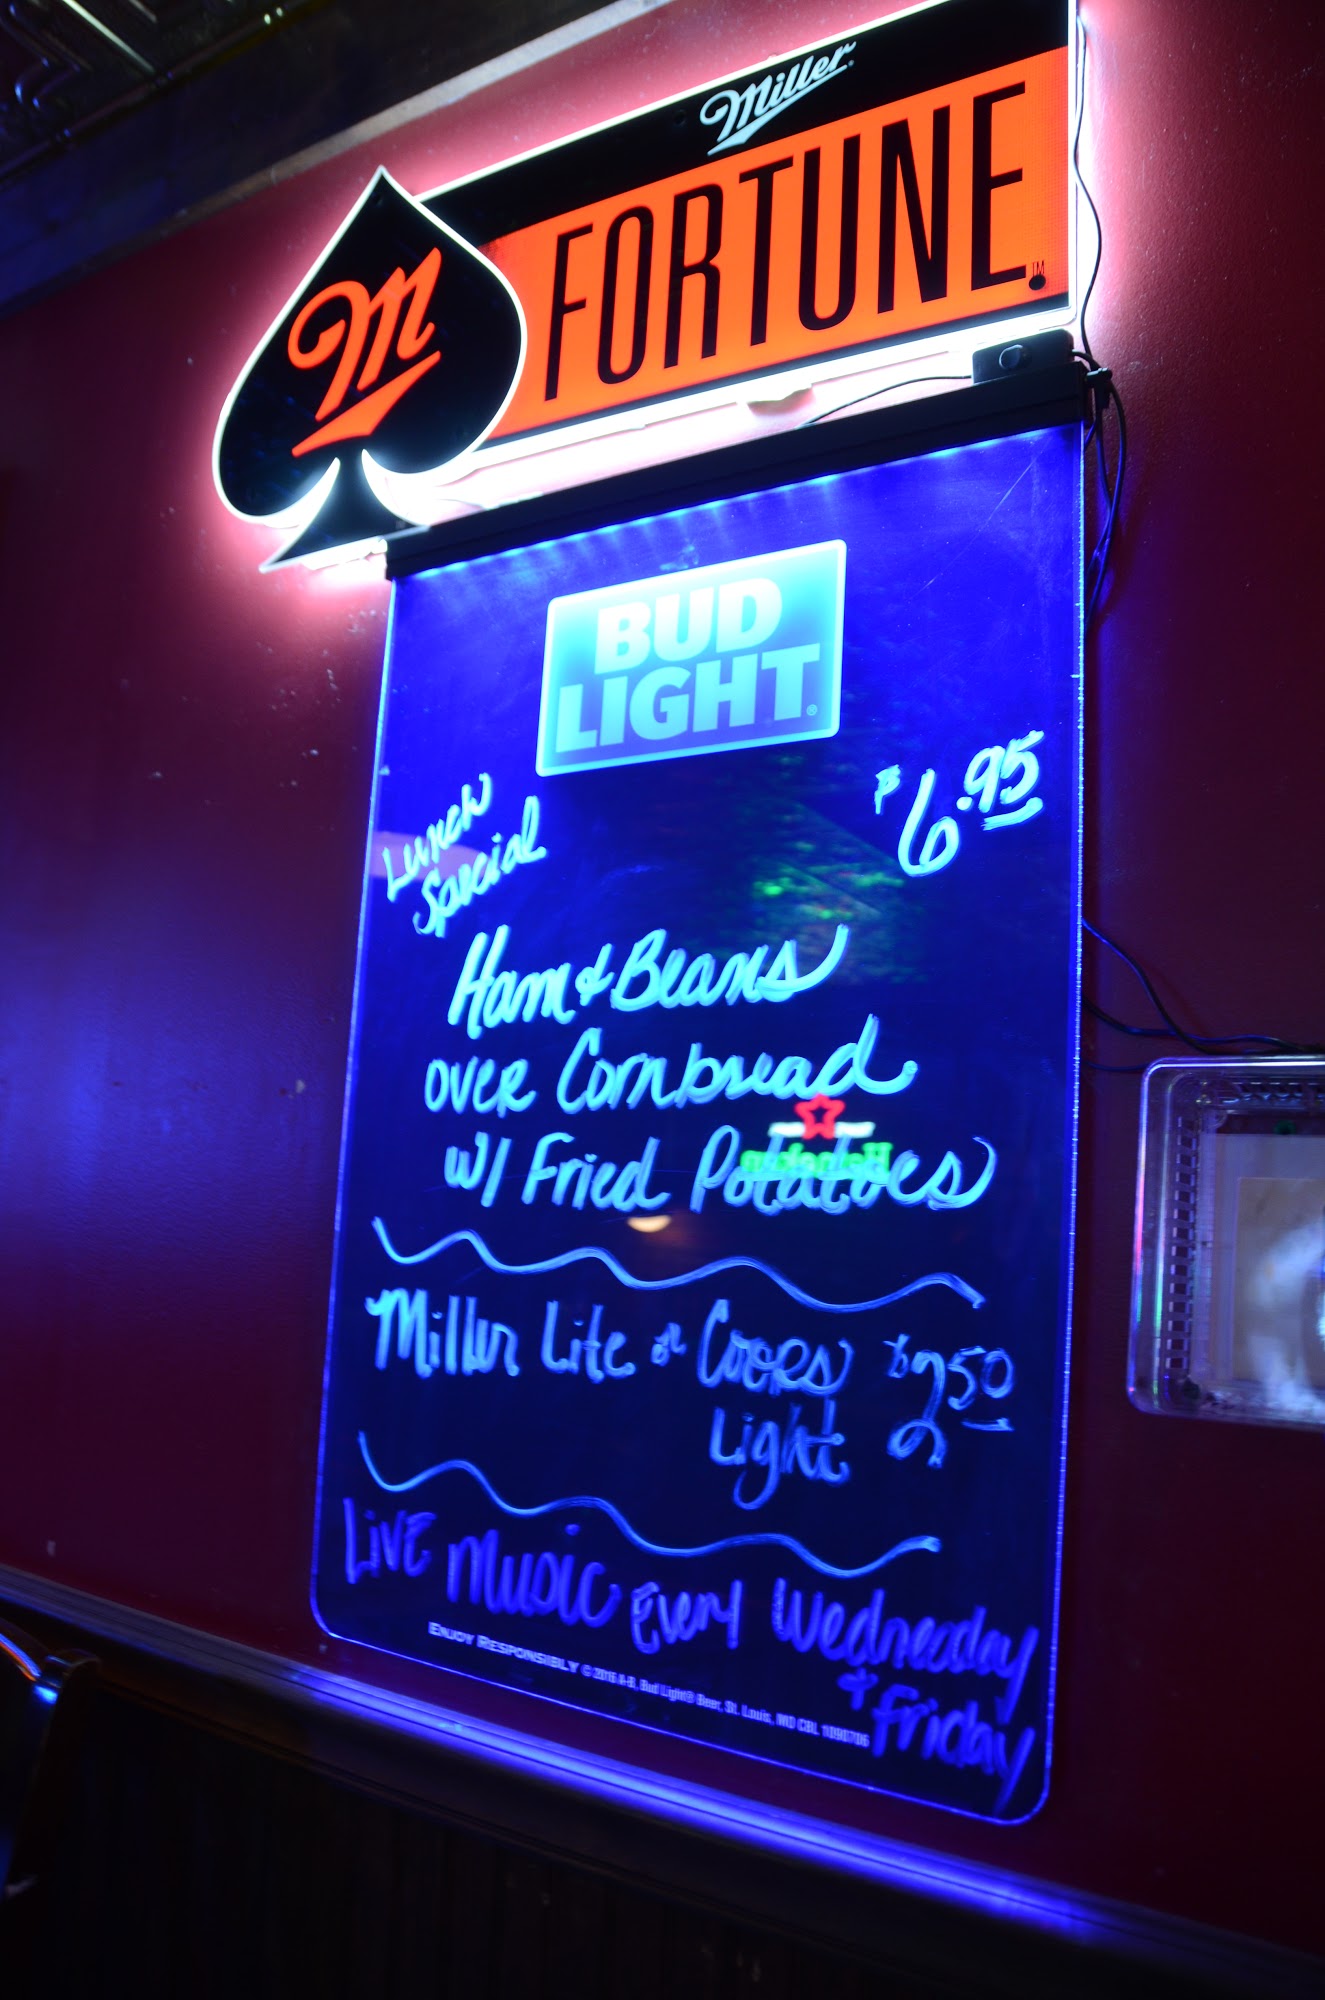 Miller
M FORTUNE.™
BUD
LIGHT®
Lunch
Special
$6.95
Ham & Beans
over Cornbread
w/ Fried Potatoes
Miller Lite or Coors $2.50
Light
Live Music Every Wednesday
+ Friday
ENJOY RESPONSIBLY © 2016 A-B, Bud Light® Beer, St. Louis, MO CBL 1090706